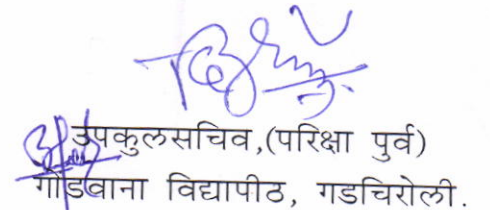 उपकुलसचिव,(परिक्षा पुर्व)
गोंडवाना विद्यापीठ, गडचिरोली.